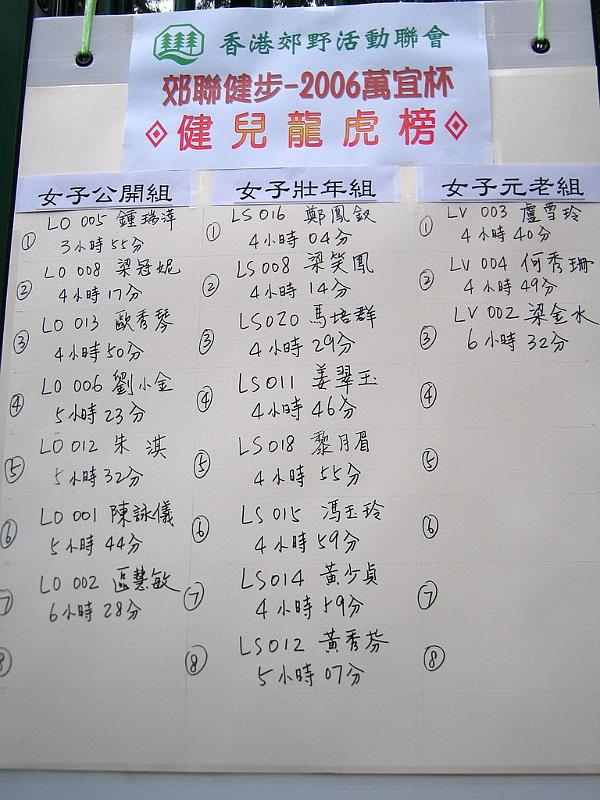 香港郊野活動聯會
郊聯健步-2006萬宜杯
健兒龍虎榜
女子公開組
① LO 005 鍾瑞萍
3小時55分
② LO 008 梁冠妮
4小時17分
③ LO 013 歐秀琴
4小時50分
④ LO 006 劉小金
5小時23分
⑤ LO 012 朱淇
5小時32分
⑥ LO 001 陳詠儀
5小時44分
⑦ LO 002 區慧敏
6小時28分
⑧
女子壯年組
① LS016 鄭鳳釵
4小時04分
② LS008 梁笑鳳
4小時14分
③ LS020 馬培群
4小時29分
④ LS011 姜翠玉
4小時46分
⑤ LS018 黎月眉
4小時55分
⑥ LS015 馮玉玲
4小時59分
⑦ LS014 黃少貞
4小時59分
⑧ LS012 黃秀芬
5小時07分
女子元老組
① LV 003 盧雪玲
4小時40分
② LV 004 何秀珊
4小時49分
③ LV 002 梁金水
6小時32分
④
⑤
⑥
⑦
⑧